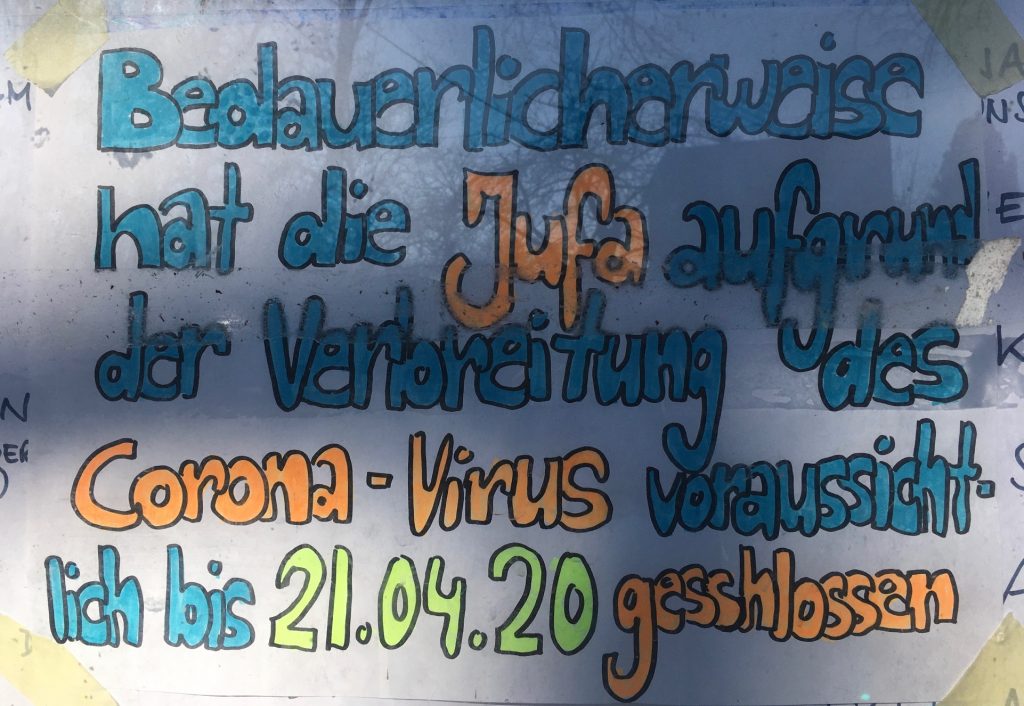 Bedauerlicherweise
hat die Jufa aufgrund
der Verbreitung des
Corona-Virus voraussicht-
lich bis 21.04.20 gesshlossen